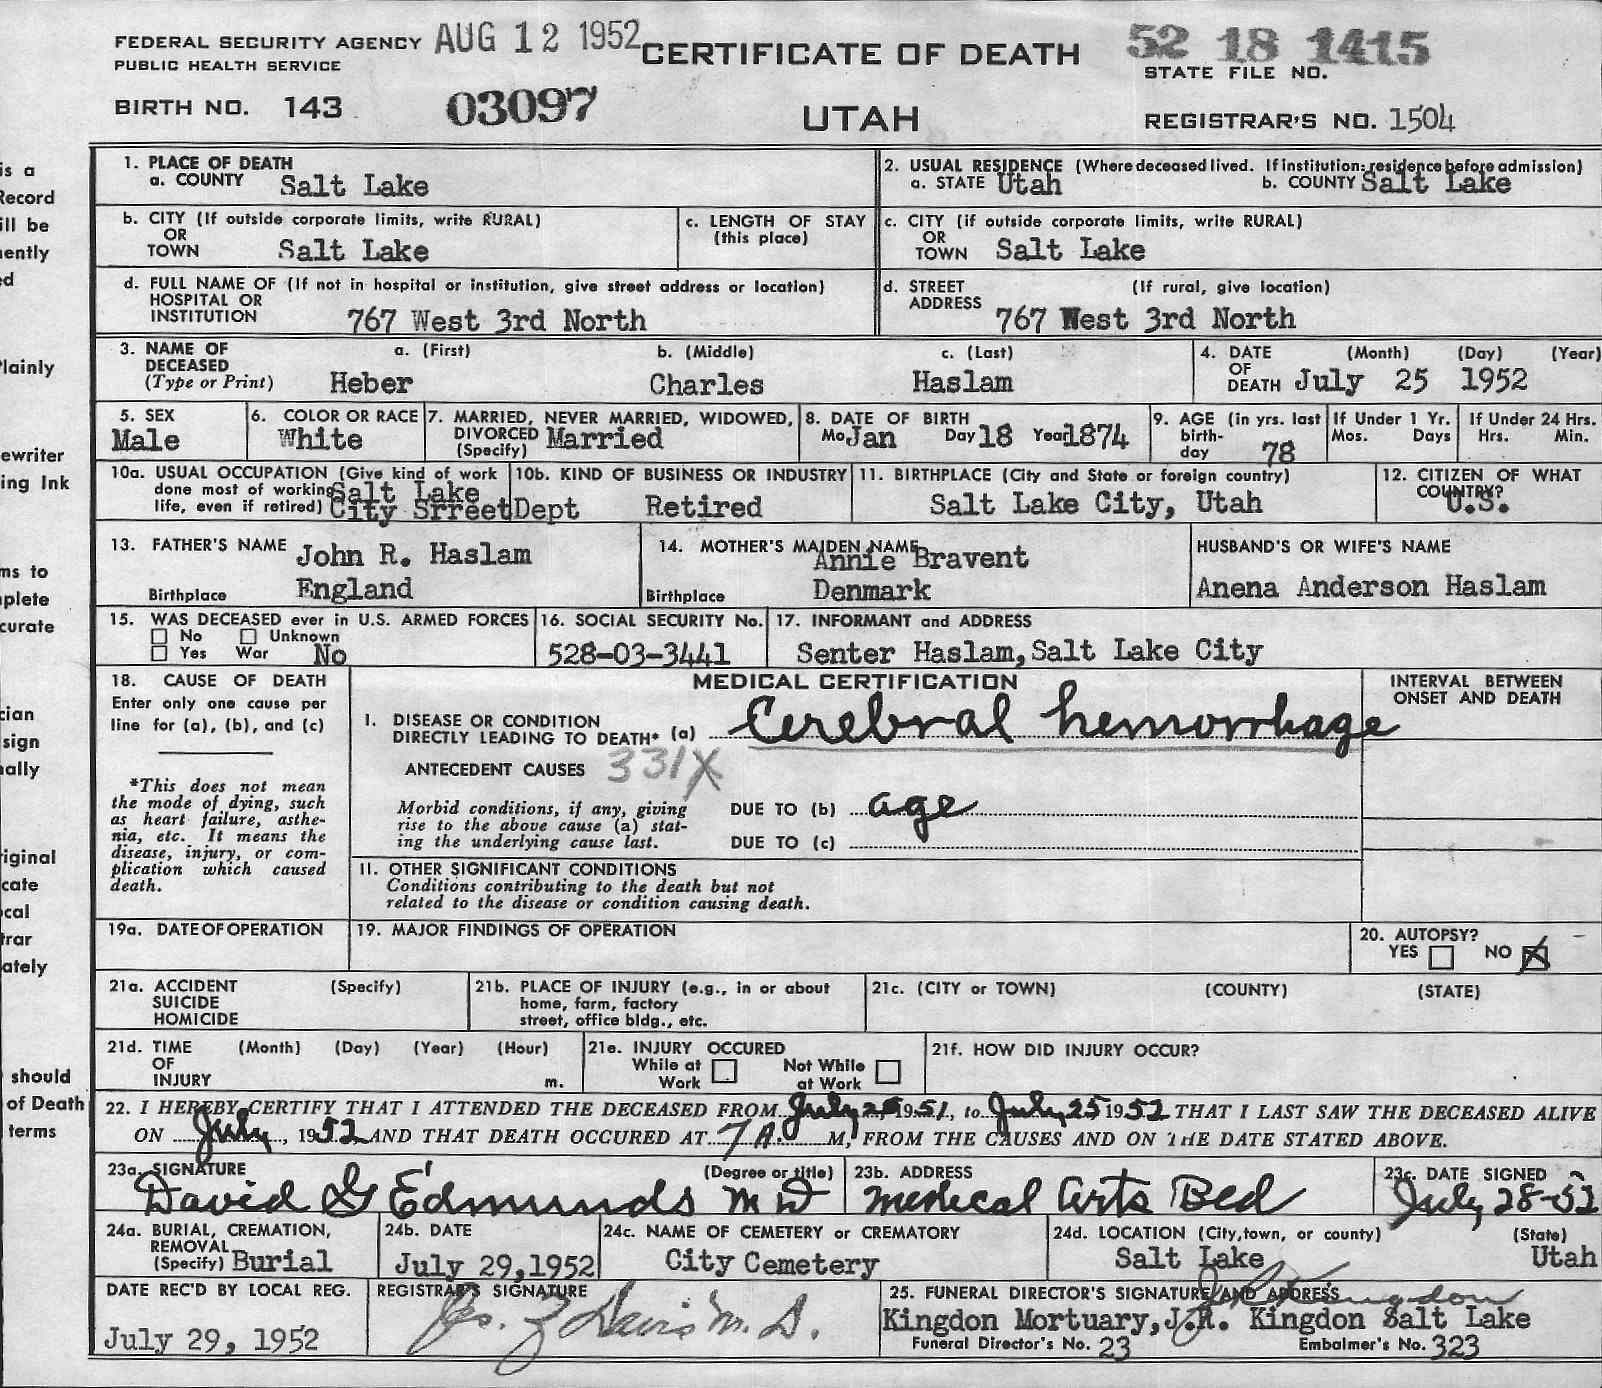 FEDERAL SECURITY AGENCY AUG 12 1952 CERTIFICATE OF DEATH 52 18 1415
PUBLIC HEALTH SERVICE STATE FILE NO.
BIRTH NO. 143 03097 UTAH REGISTRAR'S NO. 1504
is a
Record
ill be
nently
ed
Plainly
ewriter
ing Ink
ms to
plete
curate
cian
sign
nally
riginal
cate
ocal
trar
ately
should
of Death
terms
1. PLACE OF DEATH
a. COUNTY Salt Lake
2. USUAL RESIDENCE (Where deceased lived. If institution: residence before admission)
a. STATE Utah b. COUNTY Salt Lake
b. CITY (If outside corporate limits, write RURAL)
OR
TOWN Salt Lake
c. LENGTH OF STAY
(this place)
c. CITY (if outside corporate limits, write RURAL)
OR
TOWN Salt Lake
d. FULL NAME OF (If not in hospital or institution, give street address or location)
HOSPITAL OR
INSTITUTION 767 West 3rd North
d. STREET (If rural, give location)
ADDRESS 767 West 3rd North
3. NAME OF a. (First) b. (Middle) c. (Last)
DECEASED
(Type or Print) Heber Charles Haslam
4. DATE (Month) (Day) (Year)
OF
DEATH July 25 1952
5. SEX
Male
6. COLOR OR RACE
White
7. MARRIED, NEVER MARRIED, WIDOWED,
DIVORCED Married
(Specify)
8. DATE OF BIRTH
Mo Jan Day 18 Year 1874
9. AGE (in yrs. last
birth-
day 78
If Under 1 Yr.
Mos. Days
If Under 24 Hrs.
Hrs. Min.
10a. USUAL OCCUPATION (Give kind of work
done most of working Salt Lake
life, even if retired) City Srreet Dept
10b. KIND OF BUSINESS OR INDUSTRY
Retired
11. BIRTHPLACE (City and State or foreign country)
Salt Lake City, Utah
12. CITIZEN OF WHAT
COUNTRY?
U.S.
13. FATHER'S NAME John R. Haslam
Birthplace England
14. MOTHER'S MAIDEN NAME
Annie Bravent
Birthplace Denmark
HUSBAND'S OR WIFE'S NAME
Anena Anderson Haslam
15. WAS DECEASED ever in U.S. ARMED FORCES
No Unknown
Yes War No
16. SOCIAL SECURITY No.
528-03-3441
17. INFORMANT and ADDRESS
Senter Haslam, Salt Lake City
18. CAUSE OF DEATH
Enter only one cause per
line for (a), (b), and (c)
*This does not mean
the mode of dying, such
as heart failure, asthe-
nia, etc. It means the
disease, injury, or com-
plication which caused
death.
MEDICAL CERTIFICATION
INTERVAL BETWEEN
ONSET AND DEATH
I. DISEASE OR CONDITION
DIRECTLY LEADING TO DEATH* (a) Cerebral hemorrhage
ANTECEDENT CAUSES 331X
Morbid conditions, if any, giving DUE TO (b) age
rise to the above cause (a) stat-
ing the underlying cause last. DUE TO (c)
II. OTHER SIGNIFICANT CONDITIONS
Conditions contributing to the death but not
related to the disease or condition causing death.
19a. DATE OF OPERATION
19. MAJOR FINDINGS OF OPERATION
20. AUTOPSY?
YES NO X
21a. ACCIDENT (Specify)
SUICIDE
HOMICIDE
21b. PLACE OF INJURY (e.g., in or about
home, farm, factory
street, office bldg., etc.
21c. (CITY or TOWN) (COUNTY) (STATE)
21d. TIME (Month) (Day) (Year) (Hour)
OF
INJURY m.
21e. INJURY OCCURED
While at Not While
Work at Work
21f. HOW DID INJURY OCCUR?
22. I HEREBY CERTIFY THAT I ATTENDED THE DECEASED FROM July 1951, to July 25 1952 THAT I LAST SAW THE DECEASED ALIVE
ON July, 1952 AND THAT DEATH OCCURED AT 7 A. M, FROM THE CAUSES AND ON THE DATE STATED ABOVE.
23a. SIGNATURE (Degree or title)
David G Edmunds MD
23b. ADDRESS
Medical Arts Bld
23c. DATE SIGNED
July 28-52
24a. BURIAL, CREMATION,
REMOVAL
(Specify) Burial
24b. DATE
July 29,1952
24c. NAME OF CEMETERY or CREMATORY
City Cemetery
24d. LOCATION (City, town, or county) (State)
Salt Lake Utah
DATE REC'D BY LOCAL REG.
July 29, 1952
REGISTRAR'S SIGNATURE
Davis M. D.
25. FUNERAL DIRECTOR'S SIGNATURE AND ADDRESS
J R Kingdon
Kingdon Mortuary, J.R. Kingdon Salt Lake
Funeral Director's No. 23 Embalmer's No. 323